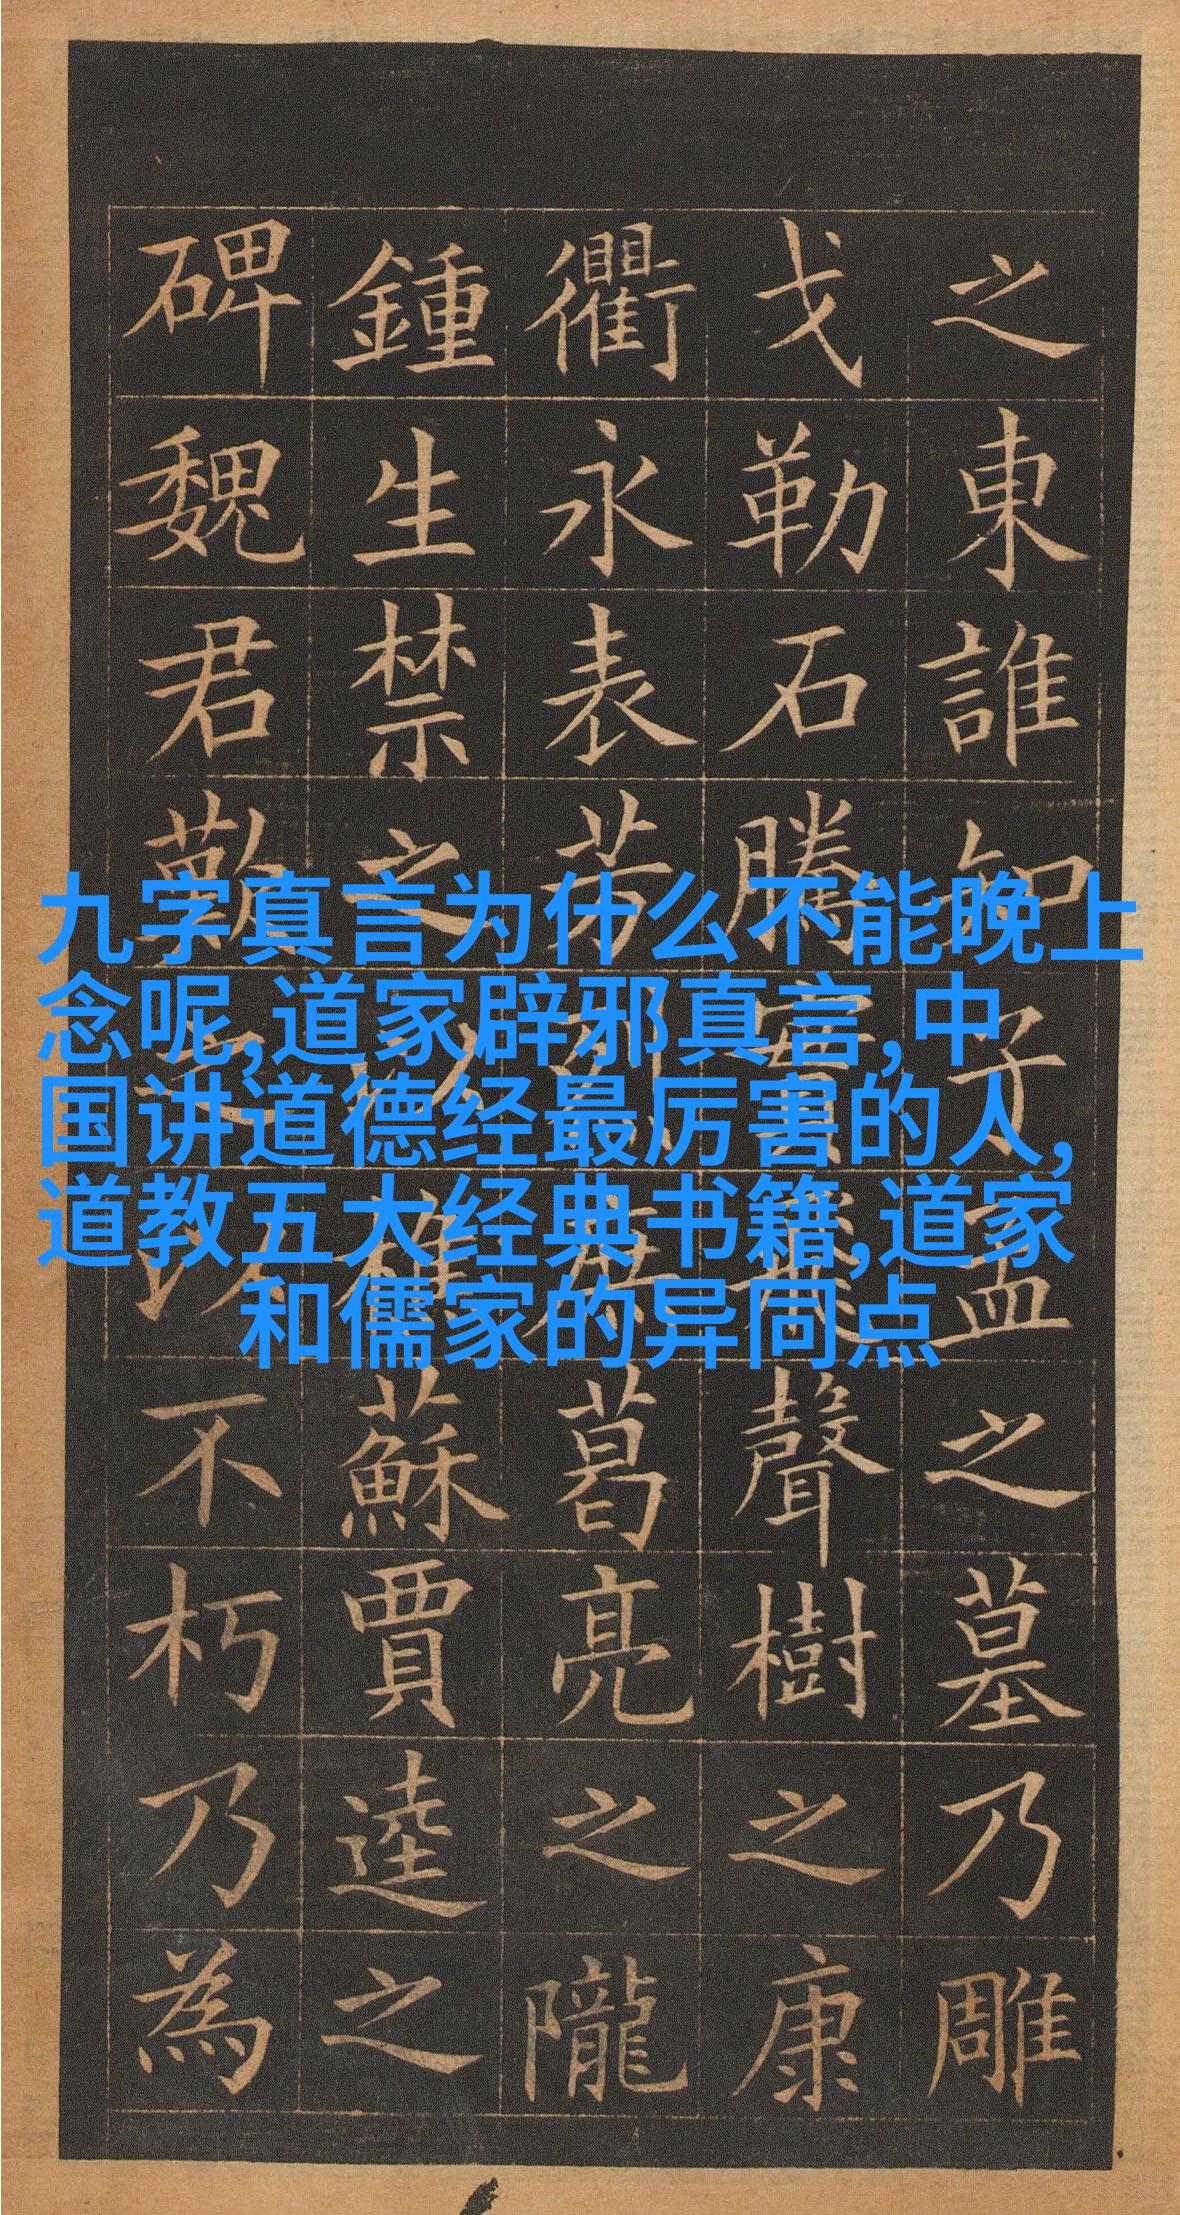 九字真言为什么不能晚上
念呢,道家辟邪真言,中
国讲道德经最厉害的人,
道教五大经典书籍,道家
和儒家的异同点
之東誰知子孟之墓乃雕
戈勒石騰實飛聲樹之康
衢永表芳烈葛亮之隴
鍾生禁之以樵蘇賈逵之
碑魏君以不朽乃為